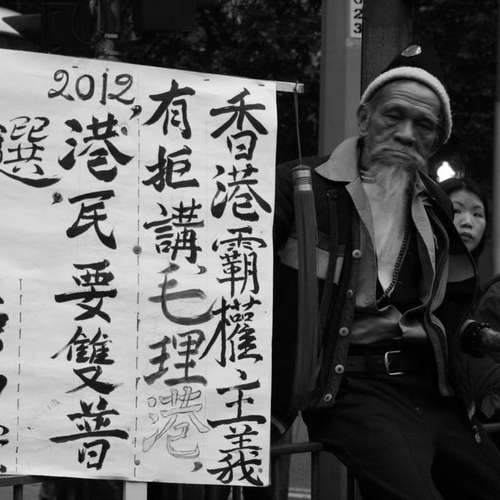 香港霸權主義
有拒講毛理港,
2012,港民要雙普
選,
023